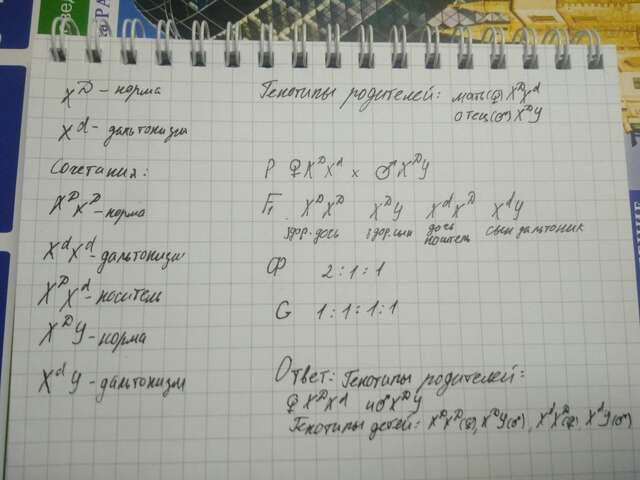 X^D - норма
X^d - дальтонизм
Сочетания:
X^D X^D - норма
X^d X^d - дальтонизм
X^D X^d - носитель
X^D У - норма
X^d У - дальтонизм
Генотипы родителей: мать(♀) X^D X^d
отец(♂) X^D У
P ♀ X^D X^d × ♂ X^D У
F₁ X^D X^D X^D У X^d X^D X^d У
здор. дочь здор. сын дочь носитель сын дальтоник
Ф 2:1:1
G 1:1:1:1
Ответ: Генотипы родителей:
♀ X^D X^d и ♂ X^D У
Генотипы детей: X^D X^D (♀), X^D У (♂), X^d X^D (♀), X^d У (♂)